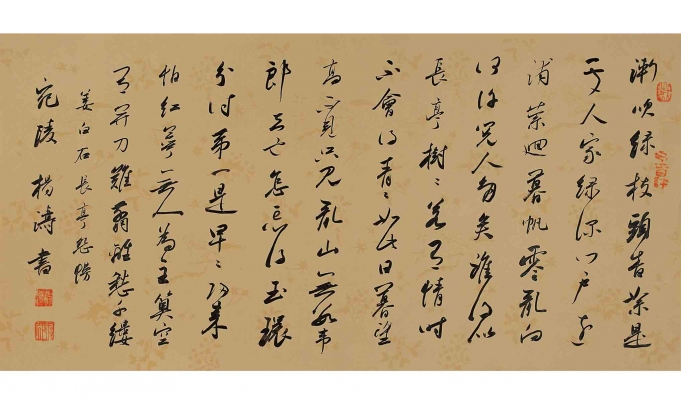 漸吹綠枝頭香絮是
處人家綠深門戶遠
浦縈迴暮帆零亂向
何許閱人多矣誰得似
長亭樹々若有情時
不會得青々如此日暮望
高不見只見亂山無數韋
郎去也怎忘得玉環
分付第一是早々歸來
怕紅萼無人為主算空
有并刀難翦離愁千縷
姜白石長亭怨慢
宛陵楊濤書